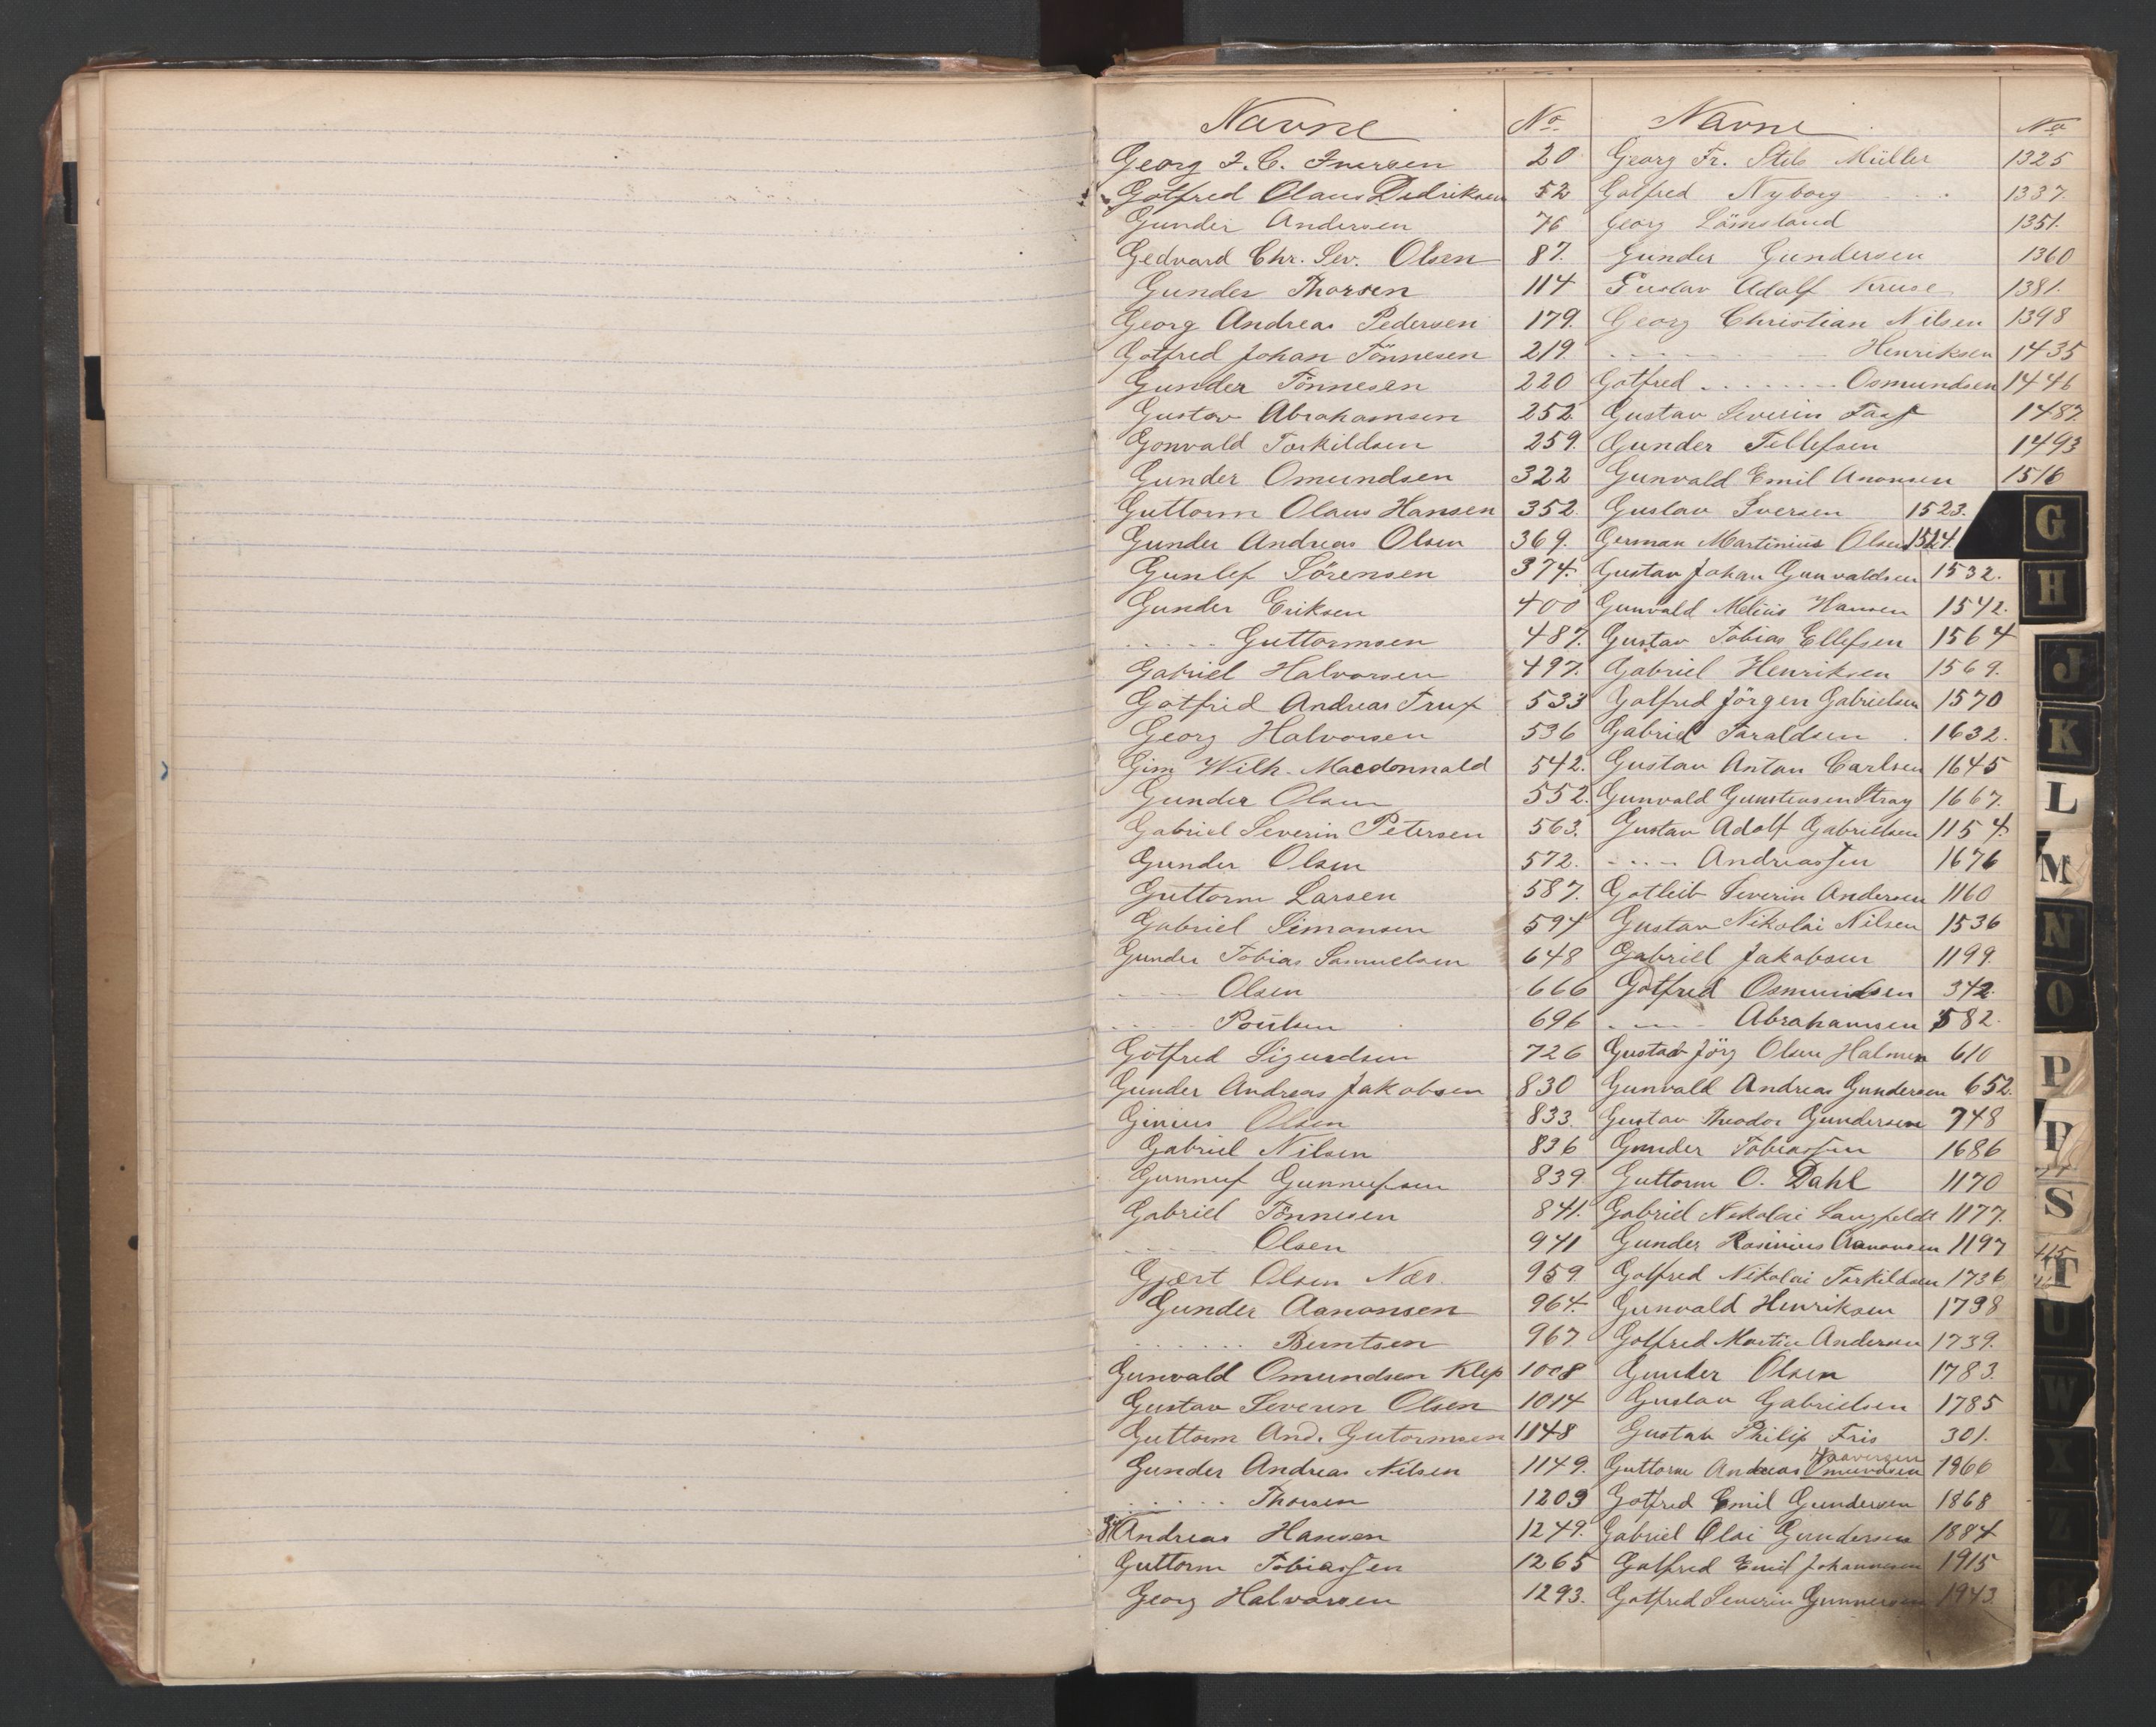 Navne No
Georg F. C. Iversen 20
Gotfred Olaus Didriksen 52
Gunder Andersen 76
Gedvard Chr. Sev. Olsen 87.
Gunder Thorsen 114
Georg Andreas Pedersen 179.
Gotfred Johan Tönnesen 219.
Gunder Tönnesen 220
Gustav Abrahamsen 252
Gonvald Torkildsen 259.
Gunder Omundsen 322
Guttorm Olaus Hansen 352.
Gunder Andreas Olsen 369.
Gunlef Sörensen 374.
Gunder Eriksen 400
..... Guttormsen 487.
Gabriel Halvorsen 497.
Gotfrid Andreas Trux 533
Georg Halvorsen 536
Gim Wilh. Macdonnald 542.
Gunder Olsen 552.
Gabriel Severin Petersen 563.
Gunder Olsen 572.
Guttorm Larsen 587.
Gabriel Simonsen 594
Gunder Tobias Samuelsen 648
---- Olsen 666
---- Poulsen 696
Gotfred Sigurdsen 726
Gunder Andreas Jakobsen 830
Ginius Olsen 833.
Gabriel Nilsen 836
Gunnuf Gunnufsen 839.
Gabriel Tönnesen 841.
---- Olsen 941
Gjært Olsen Næs. 959.
Gunder Aanonsen 964.
...... Berntsen 967
Gunvald Omundsen Klep 1008
Gustav Severin Olsen 1014
Guttorm And. Gutormsen 1148
Gunder Andreas Nilsen 1149.
..... Thorsen 1209
Andreas Hansen 1249.
Guttorm Tobiassen 1265
Georg Halvorsen 1293.
Navne No
Georg Fr. Stib Müller 1325
Gotfred Nyborg 1337.
Georg Lömsland 1351.
Gunder Gundersen 1360
Gustav Adolf Kruse 1381.
Georg Christian Nilsen 1398
..... Henriksen 1435
Gotfred ........ Osmundsen 1446
Gustav Severin 1487.
Gunder Tellefsen 1493
Gunvald Emil Anonsen 1516
Gustav Iversen 1523.
German Martinius Olsen 1524.
Gustav Johan Gunvaldsen 1532.
Gunvald Melius Hansen 1542.
Gustav Tobias Ellefsen 1564
Gabriel Henriksen 1569.
Gotfred Jörgen Gabrielsen 1570
Gabriel Taraldsen 1632.
Gustav Anton Carlsen 1645
Gunvald Gunstensen Stray 1667.
Gustav Adolf Gabrielsen 1154.
---- Andreassen 1676
Gotleib Severin Andersen 1160
Gustav Nikolai Nilsen 1536
Gabriel Jakobsen 1199.
Gotfred Osmundsen 342.
---- Abrahamsen 582.
Gustav Jörg Olsen Halmen 610
Gunvald Andreas Gundersen 652.
Gustav Theodor Gundersen 748
Gunder Tobiassen 1686
Guttorm O. Dahl 1170
Gabriel Nikolai Langfeldt 1177.
Gunder Rasinius Aanonsen 1197
Gotfred Nikolai Torkildsen 1736
Gunvald Henriksen 1738
Gotfred Martin Andersen 1739.
Gunder Olsen 1783.
Gustav Gabrielsen 1785
Gustav Philip Fris 301.
Guttorm Andreas Omundsen 1866
Gotfred Emil Gundersen 1868
Gabriel Olai Gundersen 1884
Gotfred Emil Johannesen 1915
Gotfred Severin Gunnersen 1943.
G
H
J
K
L
M
N
O
P
S
T
U
W
X
Z